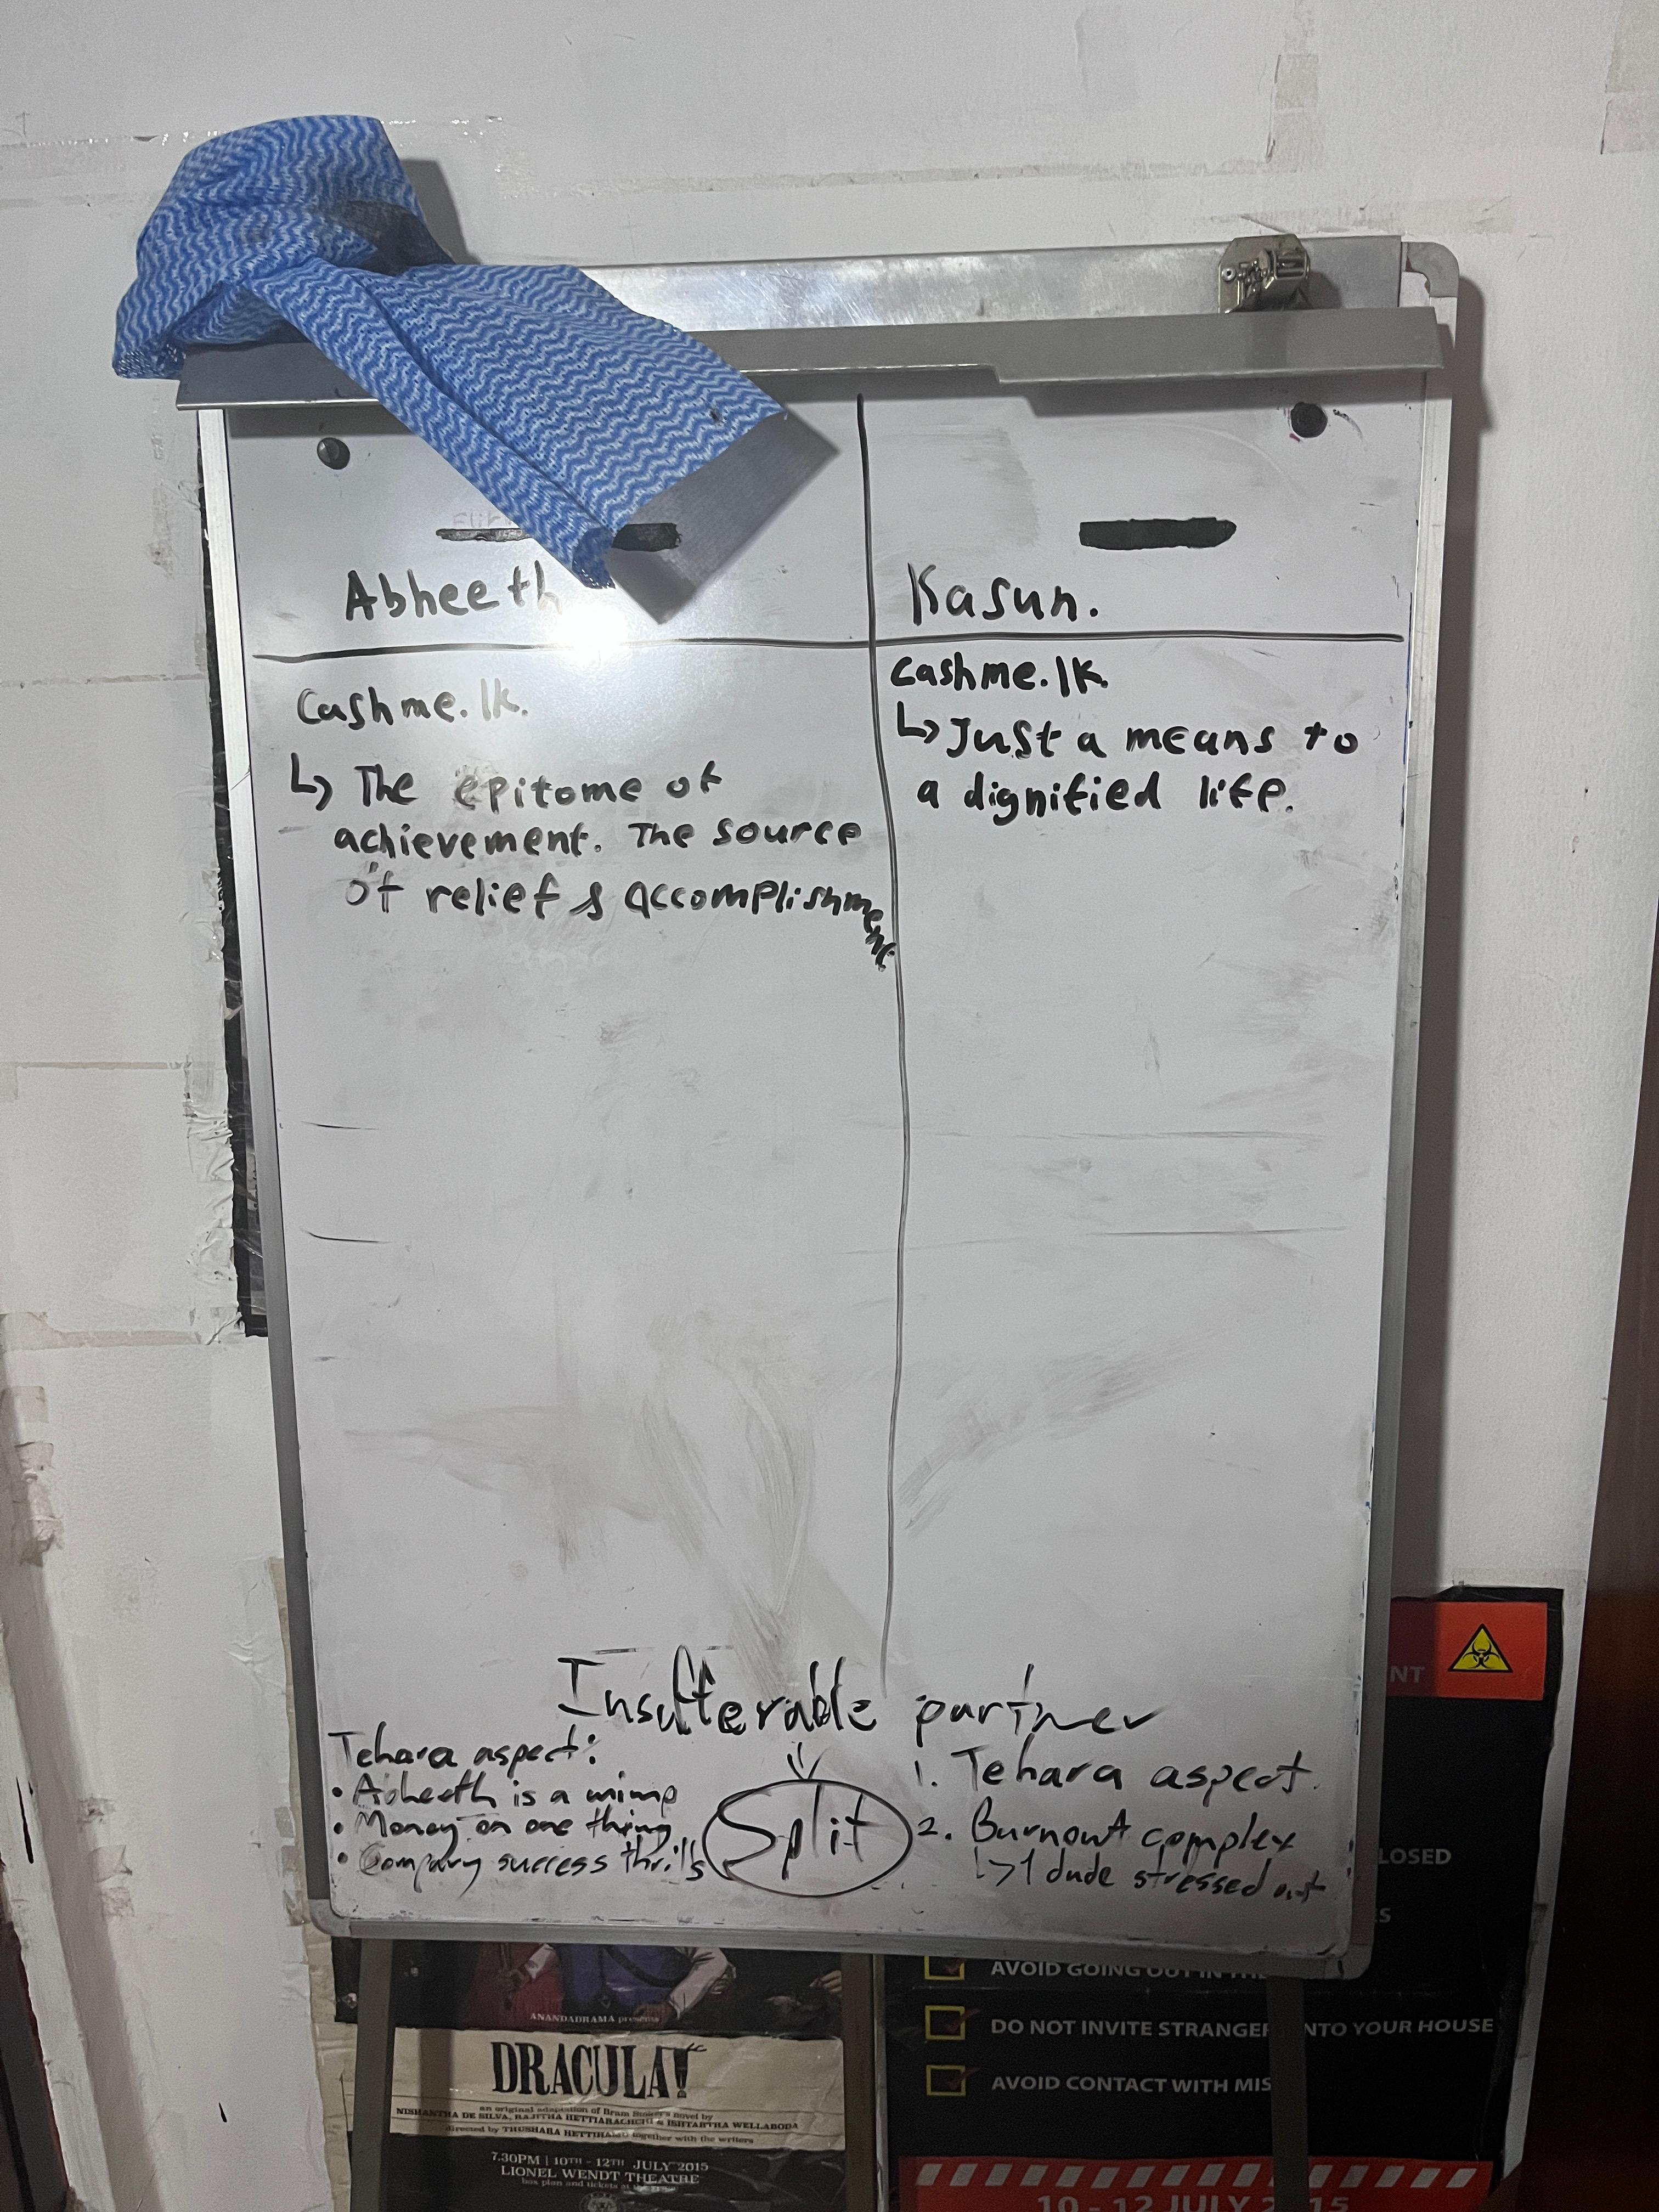 Abheeth
Kasun.
Cashme.lk.
↳ The epitome of
achievement. The source
of relief & accomplishment
Cashme.lk.
↳ Just a means to
a dignified life.
Insufferable partner
Tehara aspect:
• Abheeth is a wimp
• Money on one thing
• Company success thrills
Split
1. Tehara aspect.
2. Burnout complex
↳ 1 dude stressed out
ANANDADRAMA presents
DRACULA!
an original adaptation of Bram Stoker's novel by
NISHANTHA DE SILVA, RAJITHA HETTIARACHCHI & ISHTARTHA WELLABODA
directed by THUSHARA HETTIHAMU together with the writers
7.30PM | 10TH - 12TH JULY 2015
LIONEL WENDT THEATRE
box plan and tickets at the
NT
LOSED
ES
AVOID GOING OUT IN
DO NOT INVITE STRANGER INTO YOUR HOUSE
AVOID CONTACT WITH MIS
10 - 12 JULY 2015